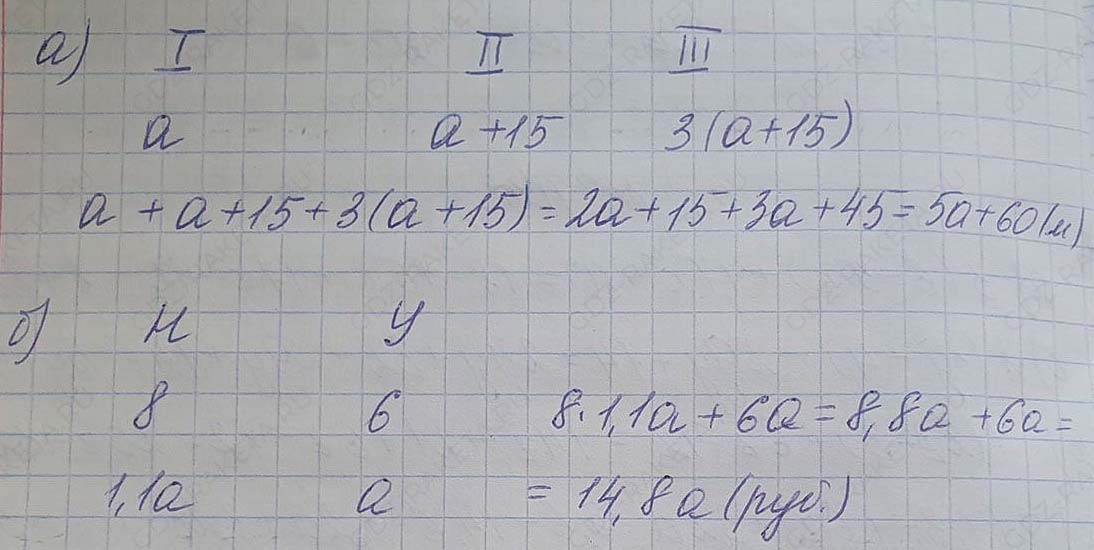 а) I II III
a a+15 3(a+15)
a + a+15+3(a+15)=2a+15+3a+45=5a+60(м)
б) Н У
8 6 8·1,1a+6a=8,8a+6a=
1,1a a =14,8a(руб.)